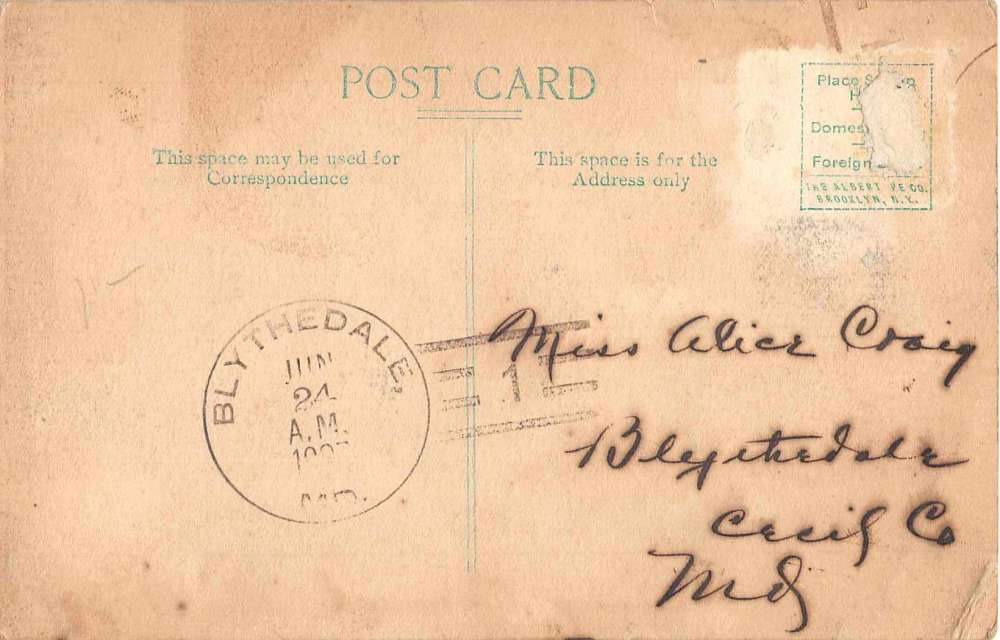 POST CARD
This space may be used for
Correspondence
This space is for the
Address only
Place
Foreign
THE ALBERT
BROOKLYN, N.Y.
BLYTHEDALE,
JUN
24
A.M.
MD.
1
Miss Alice Craig
Blythedale
Cecil Co
Md